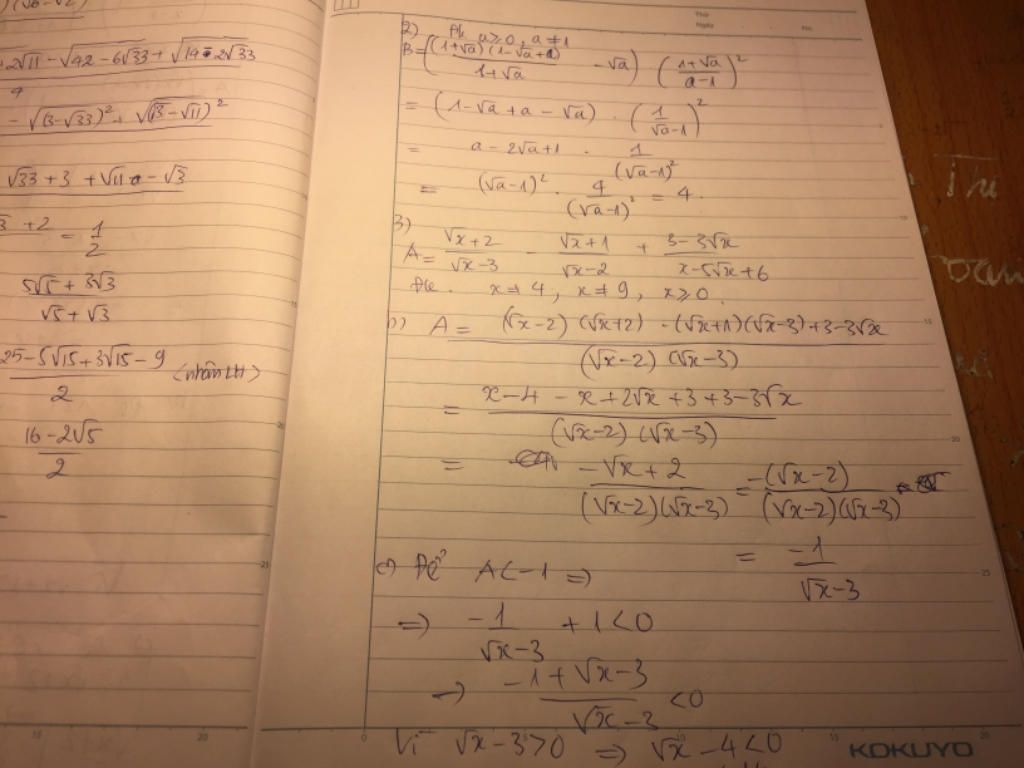 2√11 - √42 - 6√33 + √14 - 2√33
- √(3-√33)² + √(√3-√11)²
√33 + 3 + √11 - √3
+2 = 1/2
5√5 + 3√3 / √5 + √3
25 - 5√15 + 3√15 - 9 / 2 (nhân LH)
16 - 2√5 / 2
2) Đk a ≥ 0, a ≠ 1
B = ((1+√a)(1-√a+a) / 1+√a - √a) (1+√a / a-1)²
= (1 - √a + a - √a) . (1 / √a-1)²
= a - 2√a + 1 . 1 / (√a-1)²
= (√a-1)² . 4 / (√a-1)² = 4.
3)
A = √x+2 / √x-3 - √x+1 / √x-2 + 3-3√x / x-5√x+6
Đk. x ≠ 4, x ≠ 9, x ≥ 0.
A = (√x-2)(√x+2) - (√x+1)(√x-3) + 3-3√x / (√x-2)(√x-3)
= x - 4 - x + 2√x + 3 + 3 - 3√x / (√x-2)(√x-3)
= -√x+2 / (√x-2)(√x-3) = -(√x-2) / (√x-2)(√x-3)
= -1 / √x-3
c) Để A < -1 ⇒
⇒ -1 / √x-3 + 1 < 0
→ -1 + √x-3 / √x-3 < 0
Vì √x-3 > 0 ⇒ √x-4 < 0
KOKUYO